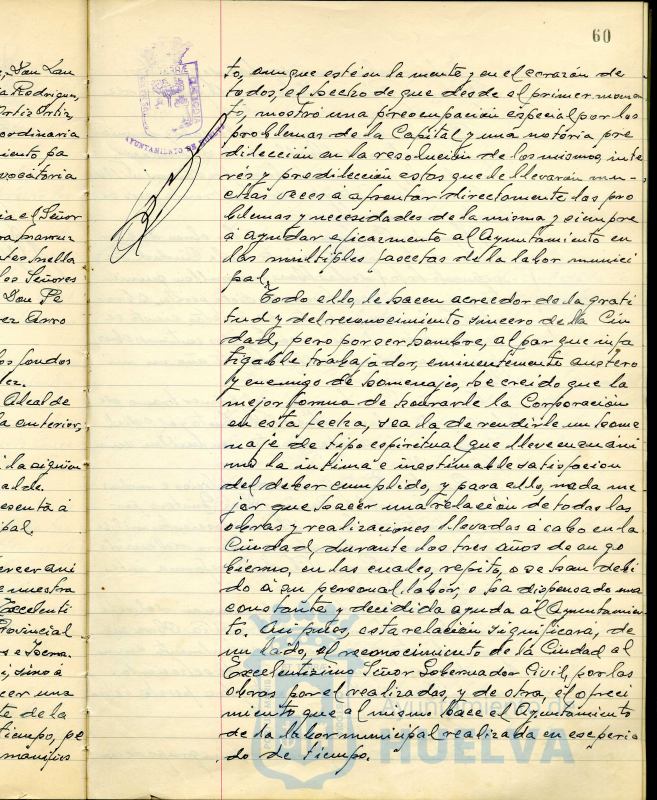 60
to, aunque esté en la mente y en el corazón de
todos, el hecho de que desde el primer momen
to, mostró una preocupación especial por los
problemas de la Capital y una notoria pre
dilección en la resolución de los mismos, inte
rés y predilección estas que le llevarán mu-
chas veces á afrontar directamente los pro
blemas y necesidades de la misma y siempre
á ayudar eficazmente al Ayuntamiento en
las múltiples facetas de la labor munici
pal.
Todo ello, le hacen acreedor de la grati
tud y del reconocimiento sincero de la Ciu
dad, pero por ser hombre, al par que infa
tigable trabajador, eminentemente austero
y enemigo de homenajes, he creido que la
mejor forma de honrarle la Corporación
en esta fecha, sea la de rendirle un home
naje de tipo espiritual que lleve en su áni
mo la intima e inestimable satisfacion
del deber cumplido, y para ello, nada me
jor que hacer una relación de todas las
obras y realizaciones llevadas á cabo en la
Ciudad, durante los tres años de su go
bierno, en las cuales, repito, o se han debi
do á su personal labor, o ha dispensado una
constante y decidida ayuda al Ayuntamien
to. Asi pues, esta relación significará, de
un lado, el reconocimiento de la Ciudad al
Excelentisimo Señor Gobernador Civil, por las
obras por el realizadas, y de otra, el ofreci
miento que al mismo hace el Ayuntamiento
de la labor municipal realizada en ese perio
do de tiempo.
AYUNTAMIENTO DE HUELVA
Don Lau
Rodriguez,
Ortiz Ortiz,
ordinaria
miento pa
vocatoria
el Señor
los Señores
Don Pé
rez
los fondos
Alcalde
la anterior,
la siguien
alde
presenta á
nuestra
Excelenti
Provincial
sino á
cer una
te de la
tiempo, pe
manifies
Ayuntamiento de
HUELVA